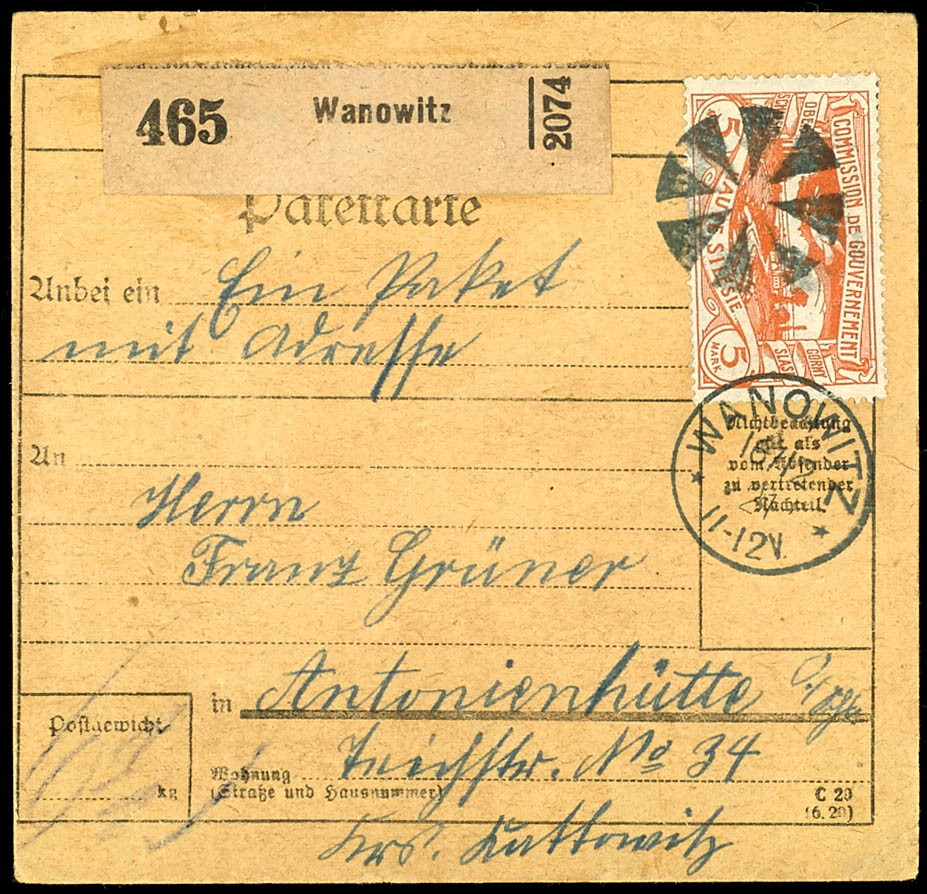 465 Wanowitz 2074
Paketkarte
COMMISSION DE GOUVERNEMENT
HAUTE SILÉSIE
5 MARK 5
GORNY
Anbei ein Ein Paket
mit Adresse
WANOWITZ
11-12V.
Nichtbeachtung
gilt als
vom Absender
zu vertretender
Nachteil.
An
Herrn
Franz Grüner
in Antonienhütte
Postgewicht
kg
Wohnung
(Straße und Hausnummer)
Teichstr. No 34
C 20
(6. 20)
Krs. Kattowitz